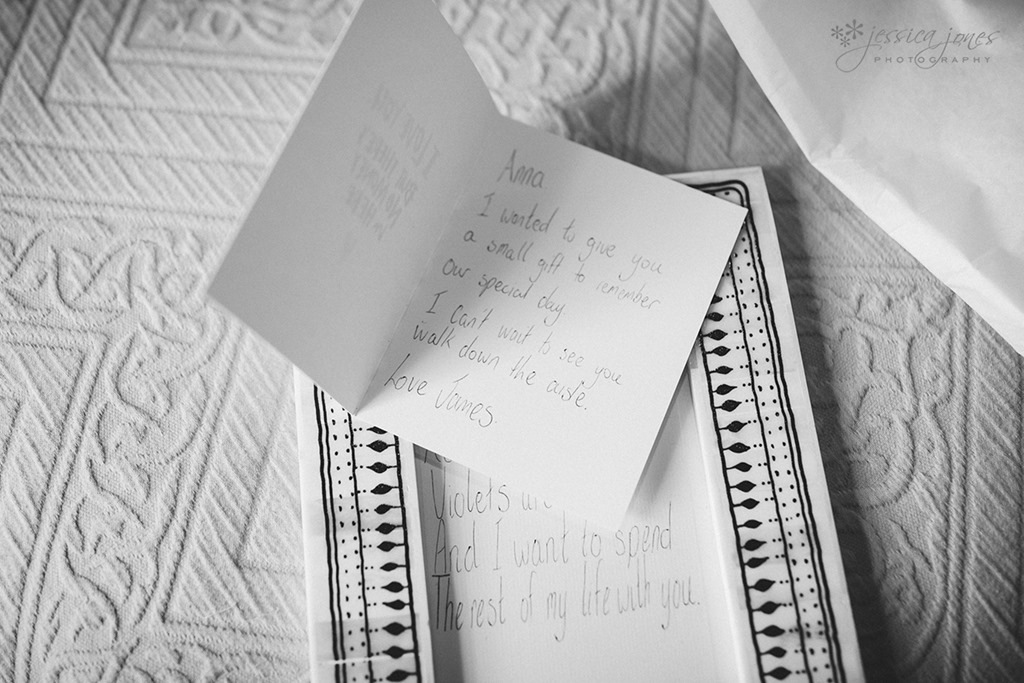 jessica jones
PHOTOGRAPHY
I LOVE YOU
BUT THERE'S
NO MONEY
IN HERE
Anna
I wanted to give you
a small gift to remember
our special day.
I can't wait to see you
walk down the aisle.
Love James.
Violets are
And I want to spend
The rest of my life with you.